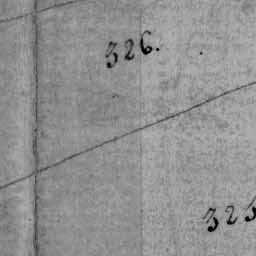 326.
325